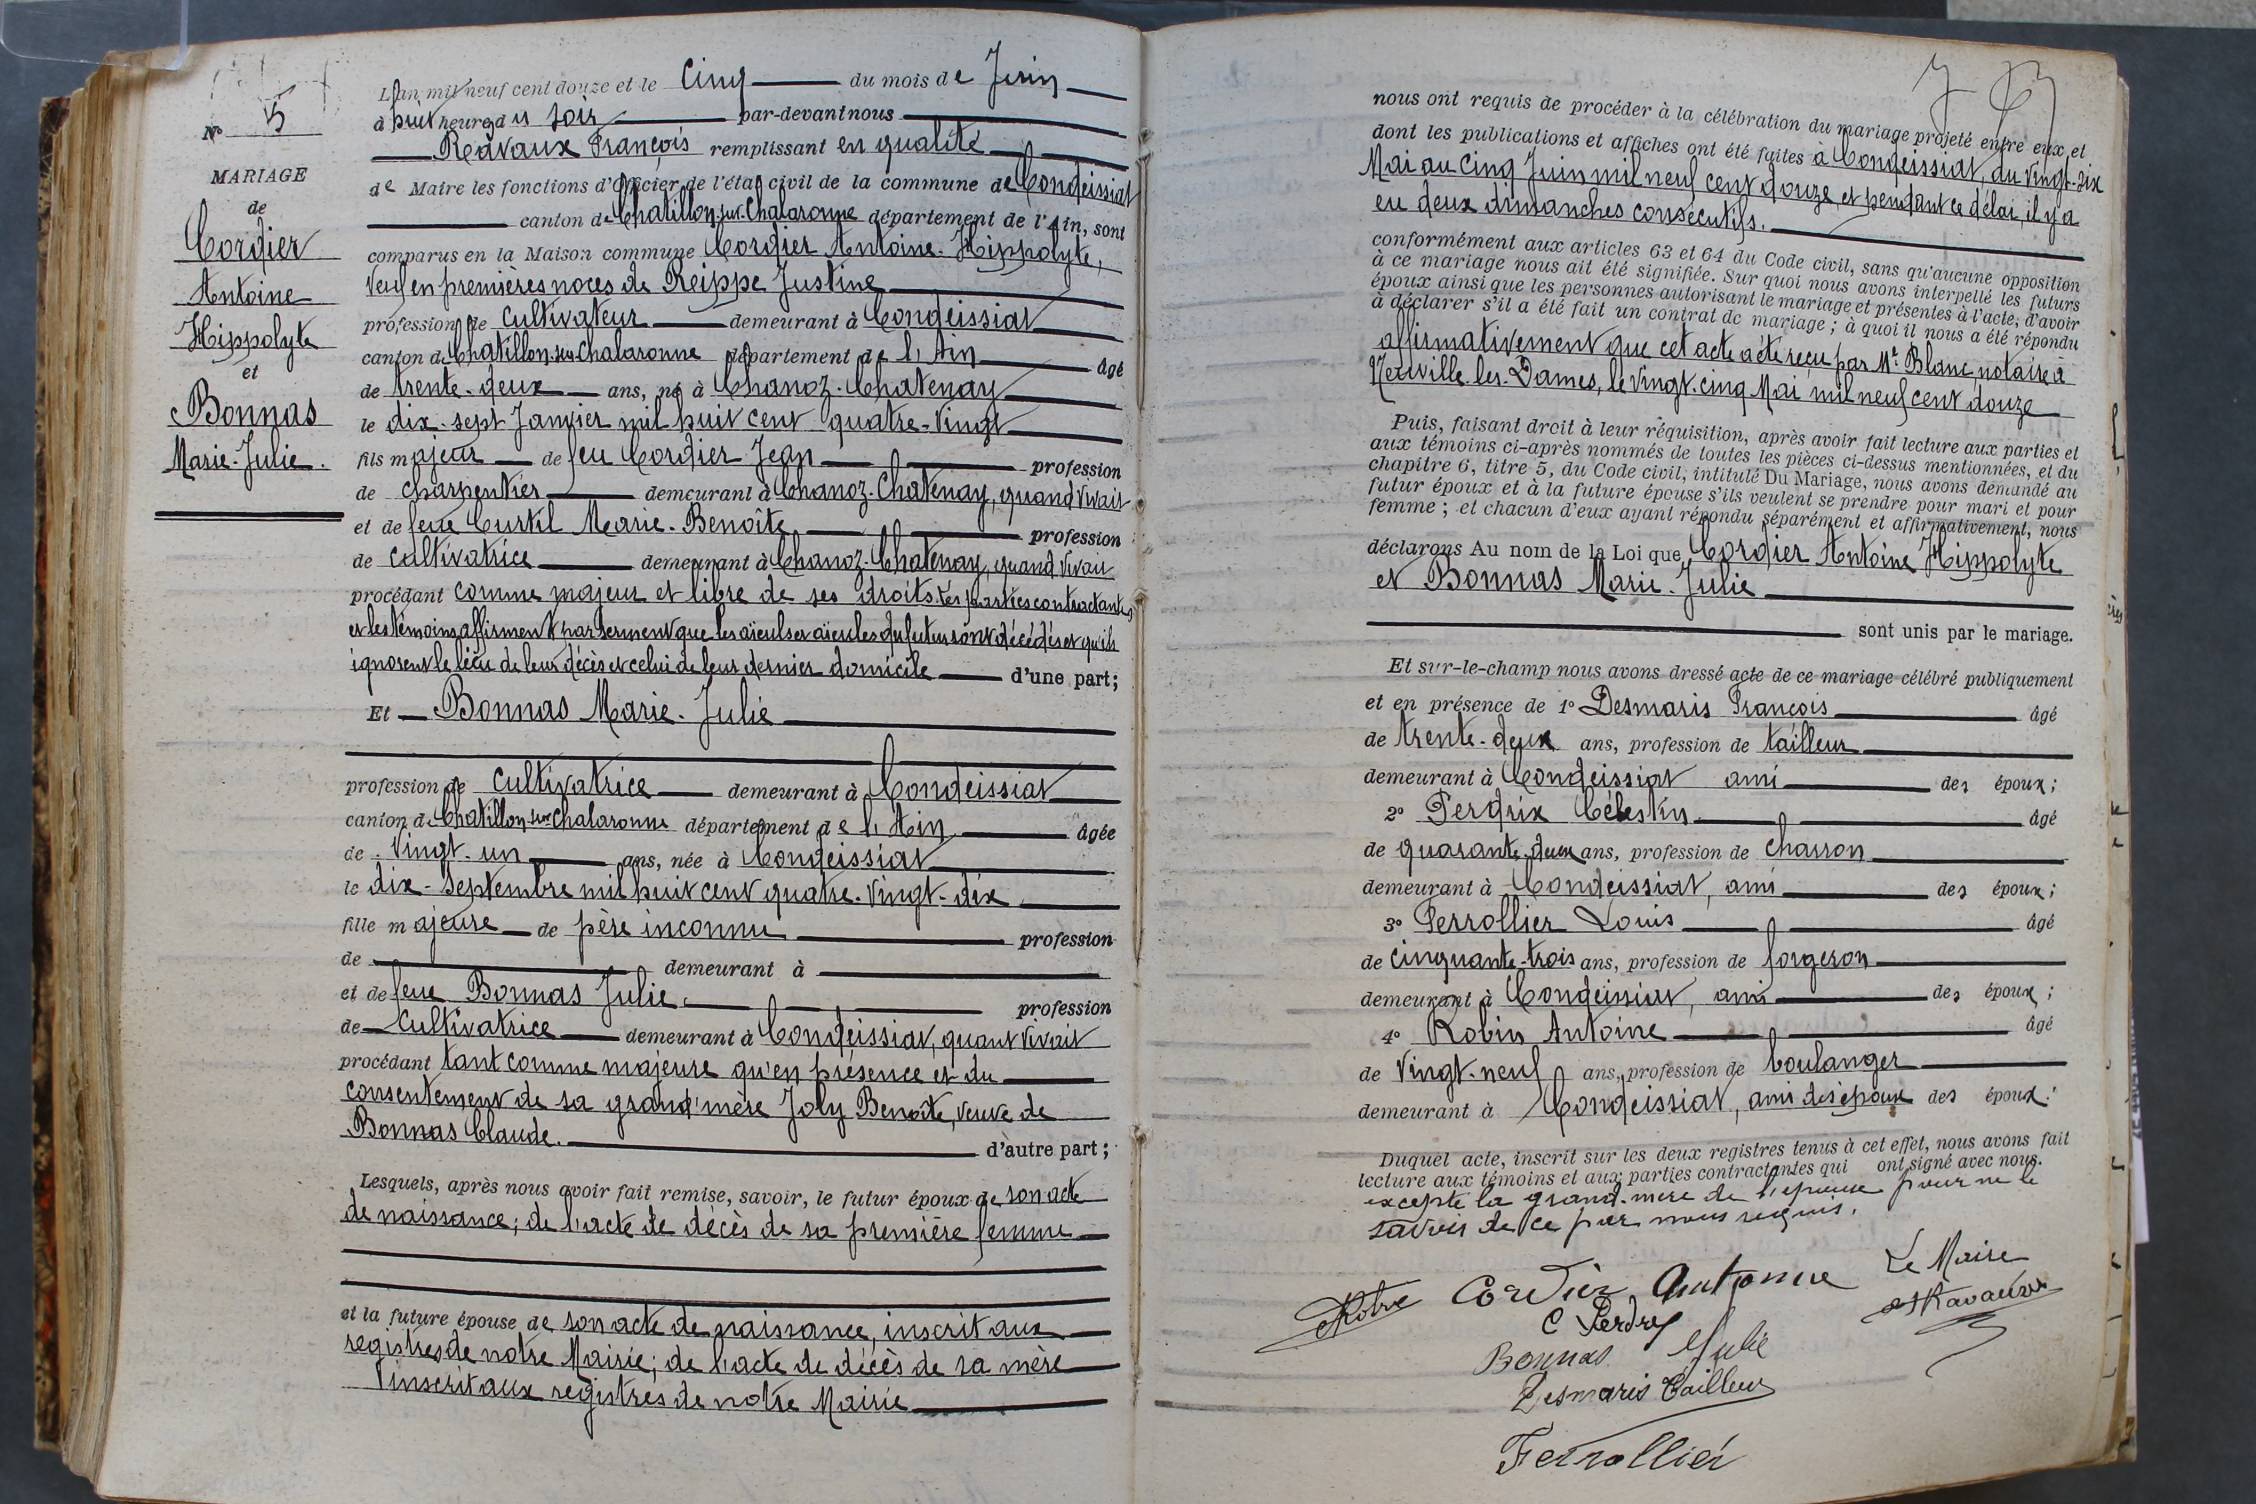 N° 5
MARIAGE
de
Cordier
Antoine
Hippolyte
et
Bonnas
Marie-Julie.
L'an mil neuf cent douze et le Cinq du mois de Juin
à huit heures du soir par-devant nous
Ravaux François remplissant en qualité
de Maire les fonctions d'Officier de l'état civil de la commune de Condeissiat
canton de Chatillon-sur-Chalaronne département de l'Ain, sont
comparus en la Maison commune Cordier Antoine-Hippolyte,
veuf en premières noces de Reippe Justine
profession de cultivateur demeurant à Condeissiat
canton de Chatillon-sur-Chalaronne département de l'Ain âgé
de trente-deux ans, né à Chanoz-Chatenay
le dix-sept Janvier mil huit cent quatre-vingt
fils majeur de feu Cordier Jean profession
de charpentier demeurant à Chanoz-Chatenay, quand vivait
et de feue Curtil Marie-Benoîte profession
de cultivatrice demeurant à Chanoz-Chatenay, quand vivait
procédant comme majeur et libre de ses droits. Les parties contractantes
et les témoins affirment par serment que les aïeuls et aïeules du futur sont décédés et qu'ils
ignorent le lieu de leur décès et celui de leur dernier domicile d'une part;
Et Bonnas Marie-Julie
profession de cultivatrice demeurant à Condeissiat
canton de Chatillon-sur-Chalaronne département de l'Ain, âgée
de vingt-un ans, née à Condeissiat
le dix-septembre mil huit cent quatre-vingt-dix
fille majeure de père inconnu profession
de demeurant à
et de feue Bonnas Julie, profession
de cultivatrice demeurant à Condeissiat, quant vivait
procédant tant comme majeure qu'en présence et du
consentement de sa grand'mère Joly Benoîte, veuve de
Bonnas Claude. d'autre part;
Lesquels, après nous avoir fait remise, savoir, le futur époux de son acte
de naissance; de l'acte de décès de sa première femme
et la future épouse de son acte de naissance, inscrit aux
registres de notre Mairie; de l'acte de décès de sa mère
inscrit aux registres de notre Mairie
nous ont requis de procéder à la célébration du mariage projeté entre eux et
dont les publications et affiches ont été faites à Condeissiat, du vingt-six
Mai au Cinq Juin mil neuf cent douze, et pendant ce délai, il y a
eu deux dimanches consécutifs.
conformément aux articles 63 et 64 du Code civil, sans qu'aucune opposition
à ce mariage nous ait été signifiée. Sur quoi nous avons interpellé les futurs
époux ainsi que les personnes autorisant le mariage et présentes à l'acte, d'avoir
à déclarer s'il a été fait un contrat de mariage; à quoi il nous a été répondu
affirmativement que cet acte a été reçu par Mt. Blanc, notaire à
Neuville-les-Dames, le vingt-cinq Mai mil neuf cent douze
Puis, faisant droit à leur réquisition, après avoir fait lecture aux parties et
aux témoins ci-après nommés de toutes les pièces ci-dessus mentionnées, et du
chapitre 6, titre 5, du Code civil, intitulé Du Mariage, nous avons demandé au
futur époux et à la future épouse s'ils veulent se prendre pour mari et pour
femme; et chacun d'eux ayant répondu séparément et affirmativement, nous
déclarons Au nom de la Loi que Cordier Antoine Hippolyte
et Bonnas Marie-Julie
sont unis par le mariage.
Et sur-le-champ nous avons dressé acte de ce mariage célébré publiquement
et en présence de 1° Desmaris François âgé
de trente-deux ans, profession de tailleur
demeurant à Condeissiat ami des époux;
2° Perdrix Célestin âgé
de quarante-deux ans, profession de charron
demeurant à Condeissiat, ami des époux;
3° Ferrollier Louis âgé
de cinquante-trois ans, profession de forgeron
demeurant à Condeissiat, ami des époux;
4° Robin Antoine âgé
de vingt-neuf ans, profession de boulanger
demeurant à Condeissiat, ami des époux des époux.
Duquel acte, inscrit sur les deux registres tenus à cet effet, nous avons fait
lecture aux témoins et aux parties contractantes qui ont signé avec nous.
excepté la grand-mère de l'épouse pour ne le
savoir de ce par nous requis.
Le Maire
Cordier Antoine
C Perdrix
Bonnas Julie
Desmaris tailleur
Ferrollier